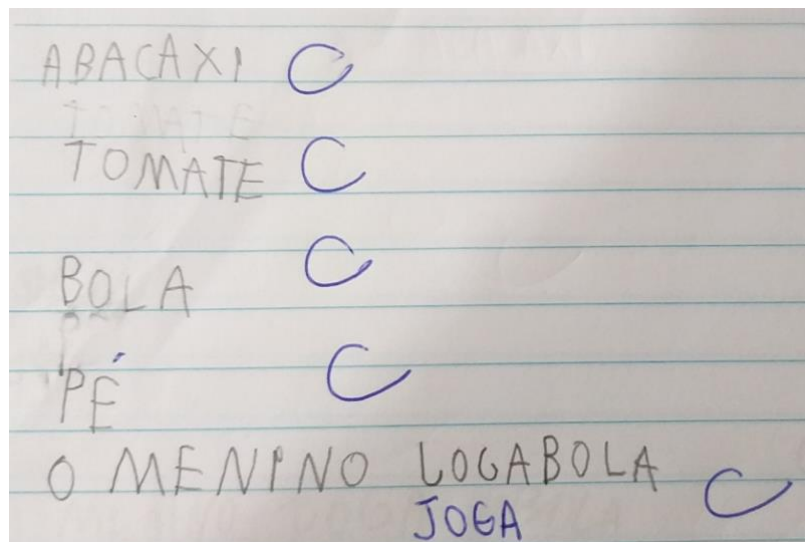 ABACAXI C
TOMATE
TOMATE C
BOLA C
PÉ C
O MENINO LOGABOLA C
JOGA